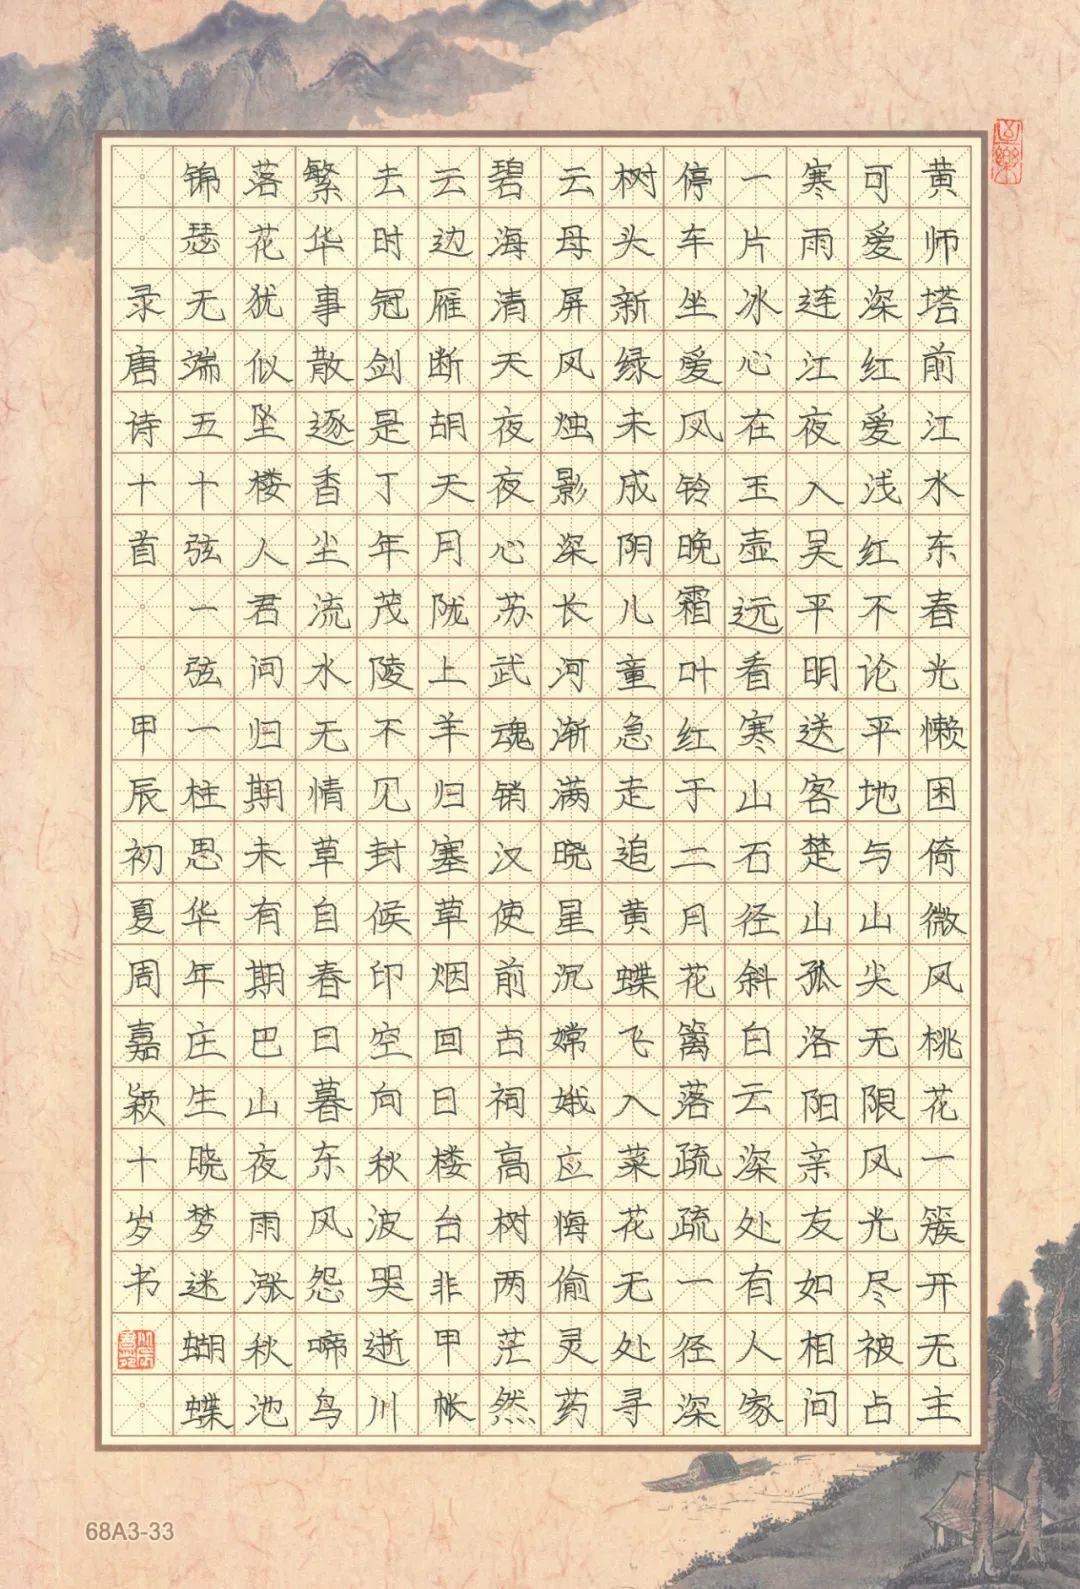 黄师塔前江水东春光懒困倚微风桃花一簇开无主
可爱深红爱浅红不论平地与山尖无限风光尽被占
寒雨连江夜入吴平明送客楚山孤洛阳亲友如相问
一片冰心在玉壶远看寒山石径斜白云深处有人家
停车坐爱风铃晚霜叶红于二月花篱落疏疏一径深
树头新绿未成阴儿童急走追黄蝶飞入菜花无处寻
云母屏风烛影深长河渐满晓星沉嫦娥应悔偷灵药
碧海清天夜夜心苏武魂销汉使前古祠高树两茫然
云边雁断胡天月陇上羊归塞草烟回日楼台非甲帐
去时冠剑是丁年茂陵不见封候印空向秋波哭逝川
繁华事散逐香尘流水无情草自春日暮东风怨啼鸟
落花犹似坠楼人君问归期未有期巴山夜雨涨秋池
锦瑟无端五十弦一弦一柱思华年庄生晓梦迷蝴蝶
录唐诗十首 甲辰初夏周嘉颖十岁书
68A3-33